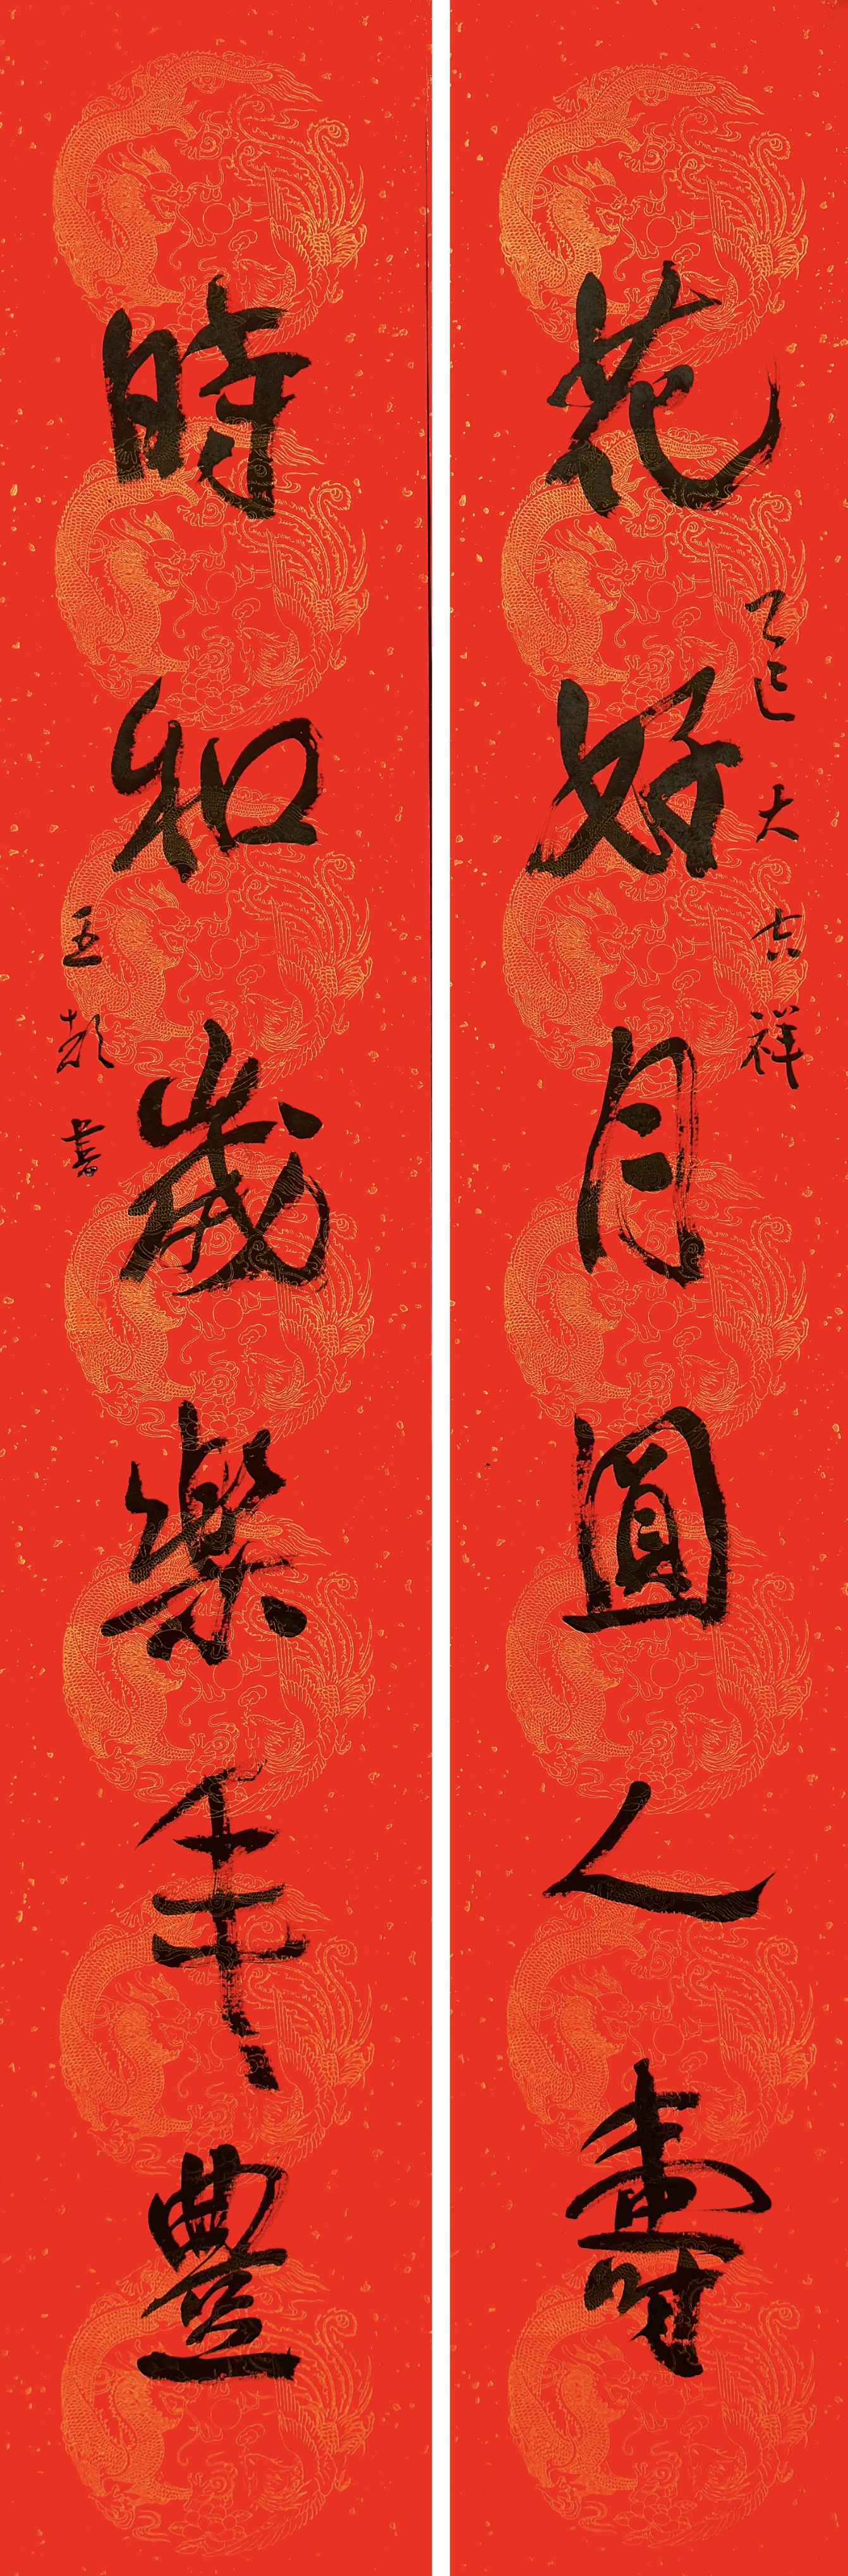 花好月圓人壽
乙巳大吉祥
時和歲樂年豐
書